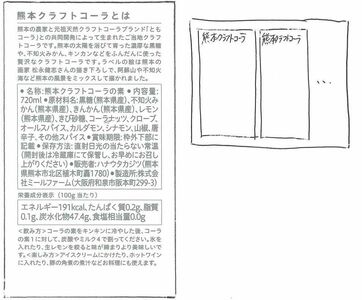 熊本クラフトコーラとは
熊本の農家と元祖天然クラフトコーラブランド「ともコーラ」との共同開発によって生まれたご当地クラフト
コーラです。熊本の太陽を浴びて育った濃厚な黒糖
や、不知火みかん、キンカンなどをふんだんに使った
贅沢なクラフトコーラです。ラベルの絵は熊本の画
家 松永健志さんの描き下ろしで、阿蘇山や不知火
海など熊本の風景をミックスして描かれました。
●名称:熊本クラフトコーラの素 ●内容量:
720ml ●原材料名:黒糖(熊本県産)、不知火み
かん(熊本県産)、きんかん(熊本県産)、レモン
(熊本県産)、きび砂糖、コーラナッツ、クローブ、
オールスパイス、カルダモン、シナモン、山椒、唐
辛子、その他スパイス ●賞味期限:枠外下部に
記載 ●保存方法:直射日光の当たらない常温
(開封後は冷蔵庫にて保管し、お早めにお召し
上がりください) ●販売者:ハナウタカジツ(熊本
県熊本市北区植木町轟1780) ●製造所:株式
会社ミールファーム(大阪府和泉市阪本町299-3)
栄養成分表示(100g当たり)
エネルギー191kcal、たんぱく質0.2g、脂質
0.1g、炭水化物47.4g、食塩相当量0.0g
<飲み方>コーラの素をキンキンに冷やした後、コーラ
の素1に対して、炭酸やミルク4で割ってください。氷を
入れたり、生レモンを絞ると味が締まりより美味しいで
す。<楽しみ方>アイスクリームにかけたり、ホットワイン
に入れたり、豚の角煮の煮汁などお料理にも使えます。
熊本クラフトコーラ
熊本クラフトコーラ
…